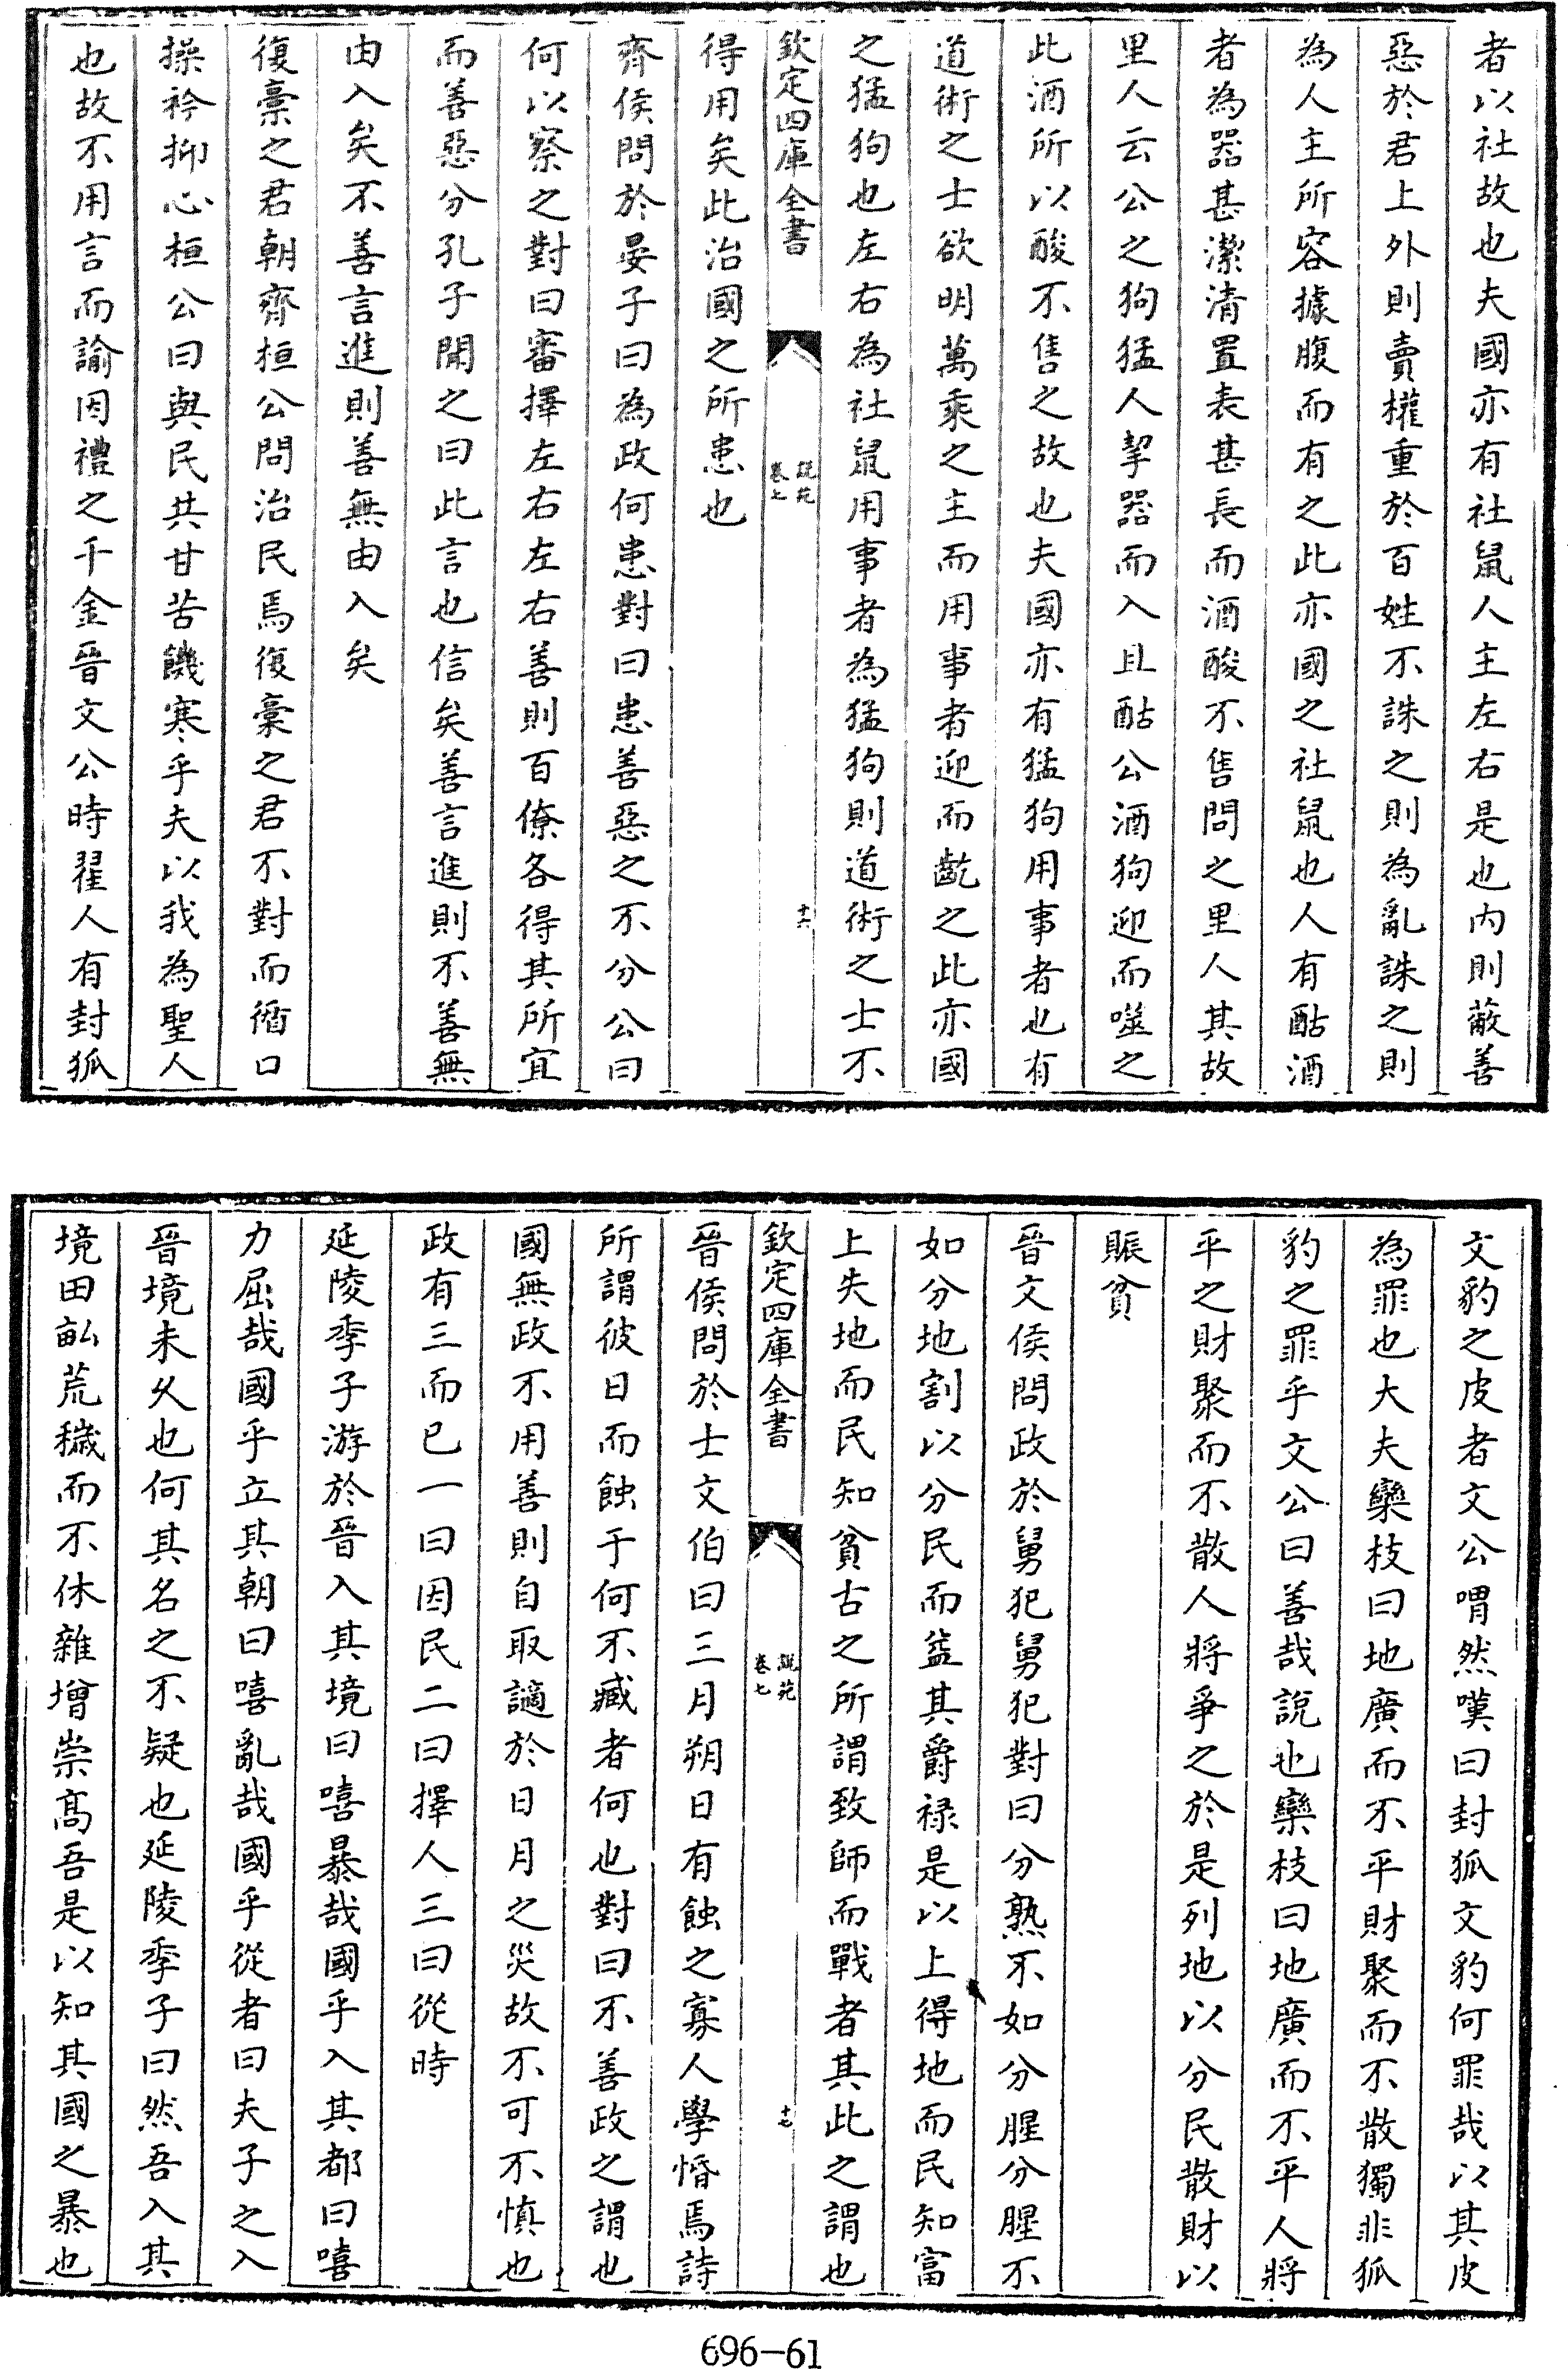 者以社故也夫國亦有社鼠人主左右是也内則蔽善
惡於君上外則賣權重於百姓不誅之則為亂誅之則
為人主所容據腹而有之此亦國之社鼠也人有酤酒
者為器甚潔清置表甚長而酒酸不售問之里人其故
里人云公之狗猛人挈器而入且酤公酒狗迎而噬之
此酒所以酸不售之故也夫國亦有猛狗用事者也有
道術之士欲明萬乘之主而用事者迎而齕之此亦國
之猛狗也左右為社鼠用事者為猛狗則道術之士不
欽定四庫全書
說苑
卷七
十六
得用矣此治國之所患也
齊侯問於晏子曰為政何患對曰患善惡之不分公曰
何以察之對曰審擇左右左右善則百僚各得其所宜
而善惡分孔子聞之曰此言也信矣善言進則不善無
由入矣不善言進則善無由入矣
復槀之君朝齊桓公問治民焉復槀之君不對而循口
操衿抑心桓公曰與民共甘苦饑寒乎夫以我為聖人
也故不用言而諭因禮之千金晉文公時翟人有封狐
文豹之皮者文公喟然嘆曰封狐文豹何罪哉以其皮
為罪也大夫欒枝曰地廣而不平財聚而不散獨非狐
豹之罪乎文公曰善哉說也欒枝曰地廣而不平人將
平之財聚而不散人將爭之於是列地以分民散財以
賑貧
晉文侯問政於舅犯舅犯對曰分熟不如分腥分腥不
如分地割以分民而益其爵禄是以上得地而民知富
上失地而民知貧古之所謂致師而戰者其此之謂也
欽定四庫全書
說苑
卷七
十七
晉侯問於士文伯曰三月朔日有蝕之寡人學惛焉詩
所謂彼日而蝕于何不臧者何也對曰不善政之謂也
國無政不用善則自取謫於日月之災故不可不慎也
政有三而已一曰因民二曰擇人三曰從時
延陵季子游於晉入其境曰嘻暴哉國乎入其都曰嘻
力屈哉國乎立其朝曰嘻亂哉國乎從者曰夫子之入
晉境未久也何其名之不疑也延陵季子曰然吾入其
境田畝荒穢而不休雜增崇髙吾是以知其國之暴也
696-61